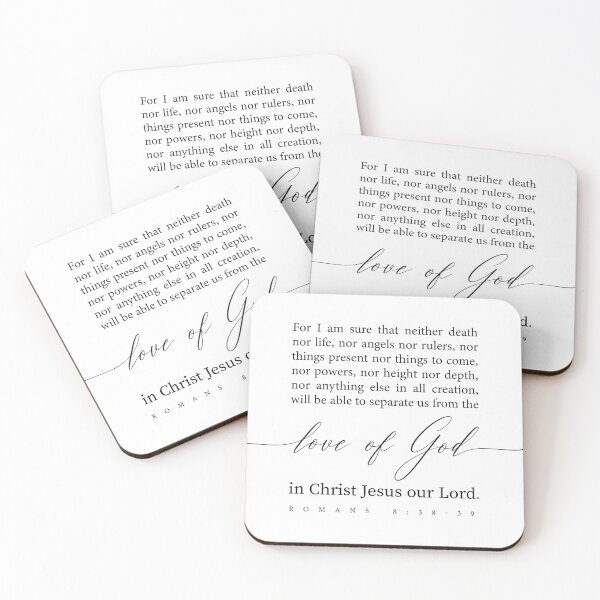 For I am sure that neither death
nor life, nor angels nor rulers, nor
things present nor things to come,
nor powers, nor height nor depth,
nor anything else in all creation,
will be able to separate us from the
God
Lo
For I am sure that neither death
nor life, nor angels nor rulers, nor
things present nor things to come,
nor powers, nor height nor depth,
nor anything else in all creation,
will be able to separate us from the
love of God
rd.
9
For I am sure that neither death
nor life, nor angels nor rulers, nor
things present nor things to come,
nor powers, nor height nor depth,
nor anything else in all creation,
will be able to separate us from the
love of G
in Christ Jesus ou
ROMANS 8
For I am sure that neither death
nor life, nor angels nor rulers, nor
things present nor things to come,
nor powers, nor height nor depth,
nor anything else in all creation,
will be able to separate us from the
love of God
in Christ Jesus our Lord.
ROMANS 8:38-39